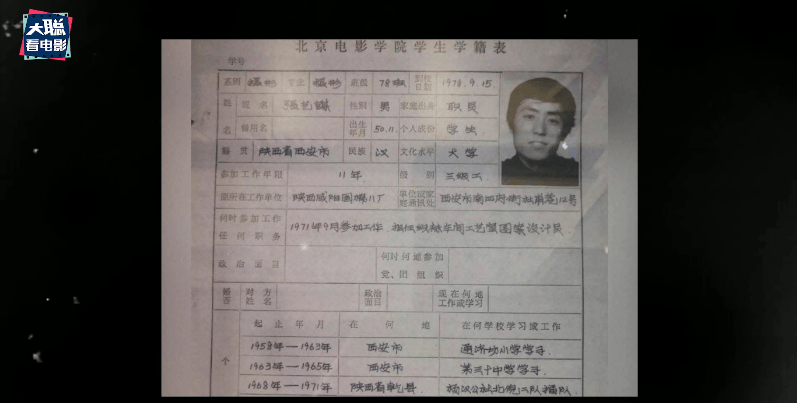 大聪
看电影
北京电影学院学生学籍表
学号
系别 摄影 专业 摄影 班级 78班 到校日期 1978.9.15.
姓名 现名 张艺谋 性别 男 家庭出身 职员
曾用名 出生年月 50.11. 个人成份 学生
籍贯 陕西省西安市 民族 汉 文化水平 大学
参加工作年限 11年 级别 三级工
原所在工作单位 陕西咸阳国棉八厂 单位或家庭通讯处 西安市 12号
何时参加工作任何职务 1971年9月参加工作 担任 车间工艺室图案设计员
政治面目 何时何地参加党、团组织
婚否 对方姓名 政治面目 现在何地工作或学习
个
起止年月 在何地 在何学校学习或工作
1958年—1963年 西安市 通济坊小学学习.
1963年—1965年 西安市 第三十中学学习.
1968年—1971年 陕西省乾县. 杨汉公社北倪二队插队.